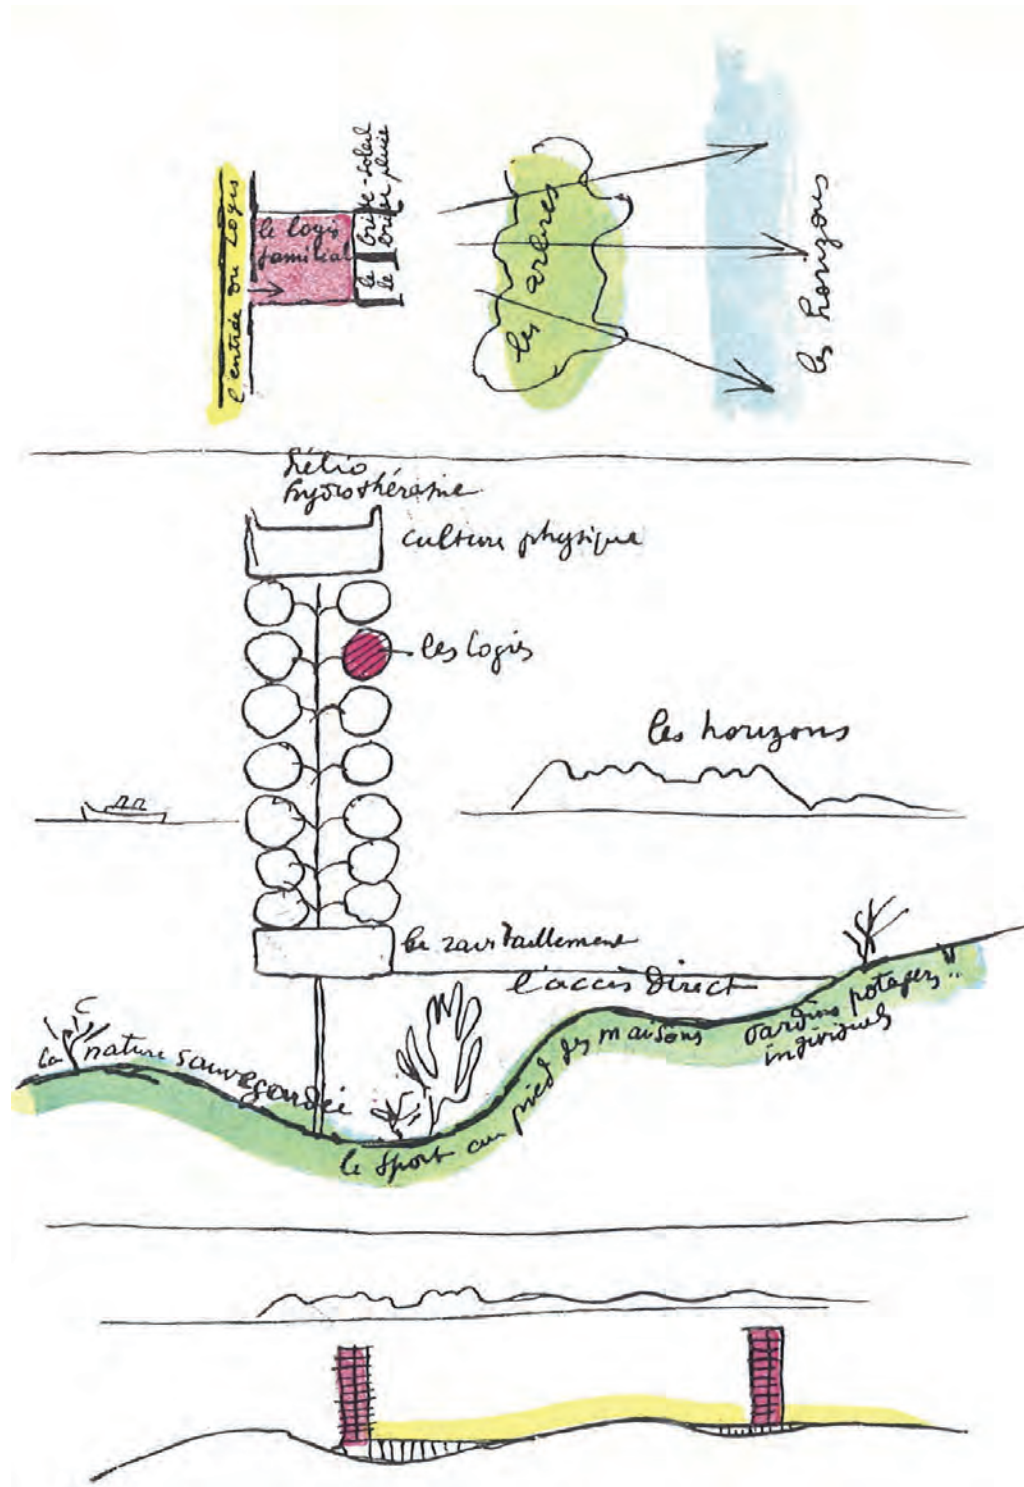 l'entrée du logis
le logis
familial
le brise-soleil
le brise pluie
les arbres
les horizons
hélio
hydrothérapie
culture physique
les logis
les horizons
le ravitaillement
l'accès direct
la nature sauvegardée
le sport au pied des maisons
jardins potagers
individuels